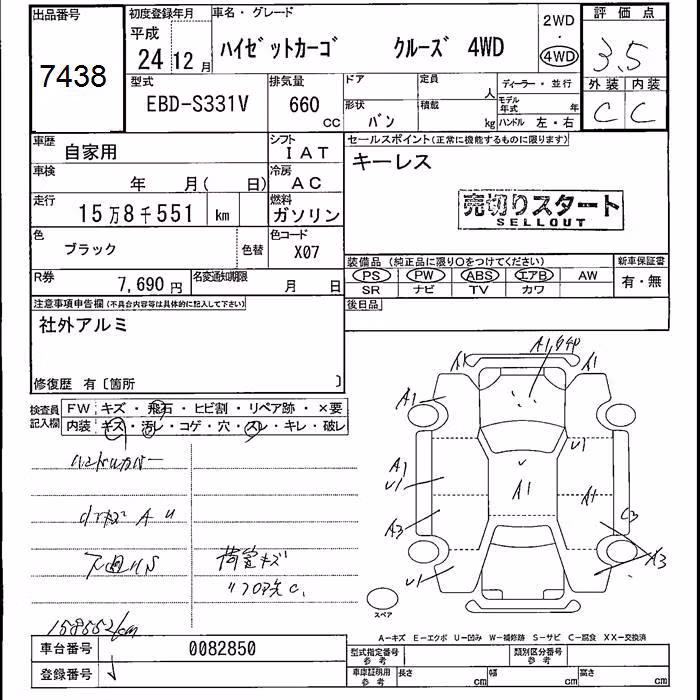 出品番号
7438
初度登録年月
平成
24 12 月
車名・グレード
ハイゼットカーゴ クルーズ 4WD
2WD
・
4WD
評価点
3.5
外装 内装
C C
型式
EBD-S331V
排気量
660
cc
ドア
形状
バン
定員
人
積載
kg
ディーラー・並行
モデル年式 年
ハンドル 左・右
車歴
自家用
シフト
IAT
車検
年 月( 日)
冷房
AC
走行
15万8千551 km
燃料
ガソリン
色
ブラック
色替
色コード
X07
R券
7,690 円
名変通知期限
月 日
セールスポイント(正常に機能するものに限ります)
キーレス
売切りスタート
SELLOUT
装備品 (純正品に限り○をつけてください)
PS PW ABS エアB AW
SR ナビ TV カワ
新車保証書
有・無
後日品
注意事項申告欄(不具合内容等は具体的に記入して下さい)
社外アルミ
修復歴 有〔箇所 〕
検査員
記入欄
FW キズ・飛石・ヒビ割・リペア跡・×要
内装 キズ・汚レ・コゲ・穴・スレ・キレ・破レ
下廻りS
荷室キズ
〃フロア先C.
158552km
A1
A1
A1
A1
A1
U1
U1
A1
A1
A3
C3
A3
U1
スペア
A-キズ E-エクボ U-凹み W-補修跡 S-サビ C-腐食 XX-交換済
車台番号 0082850
登録番号
型式指定番号
参考
類別区分番号
参考
車庫証明用
参考
長さ cm
幅 cm
高さ cm